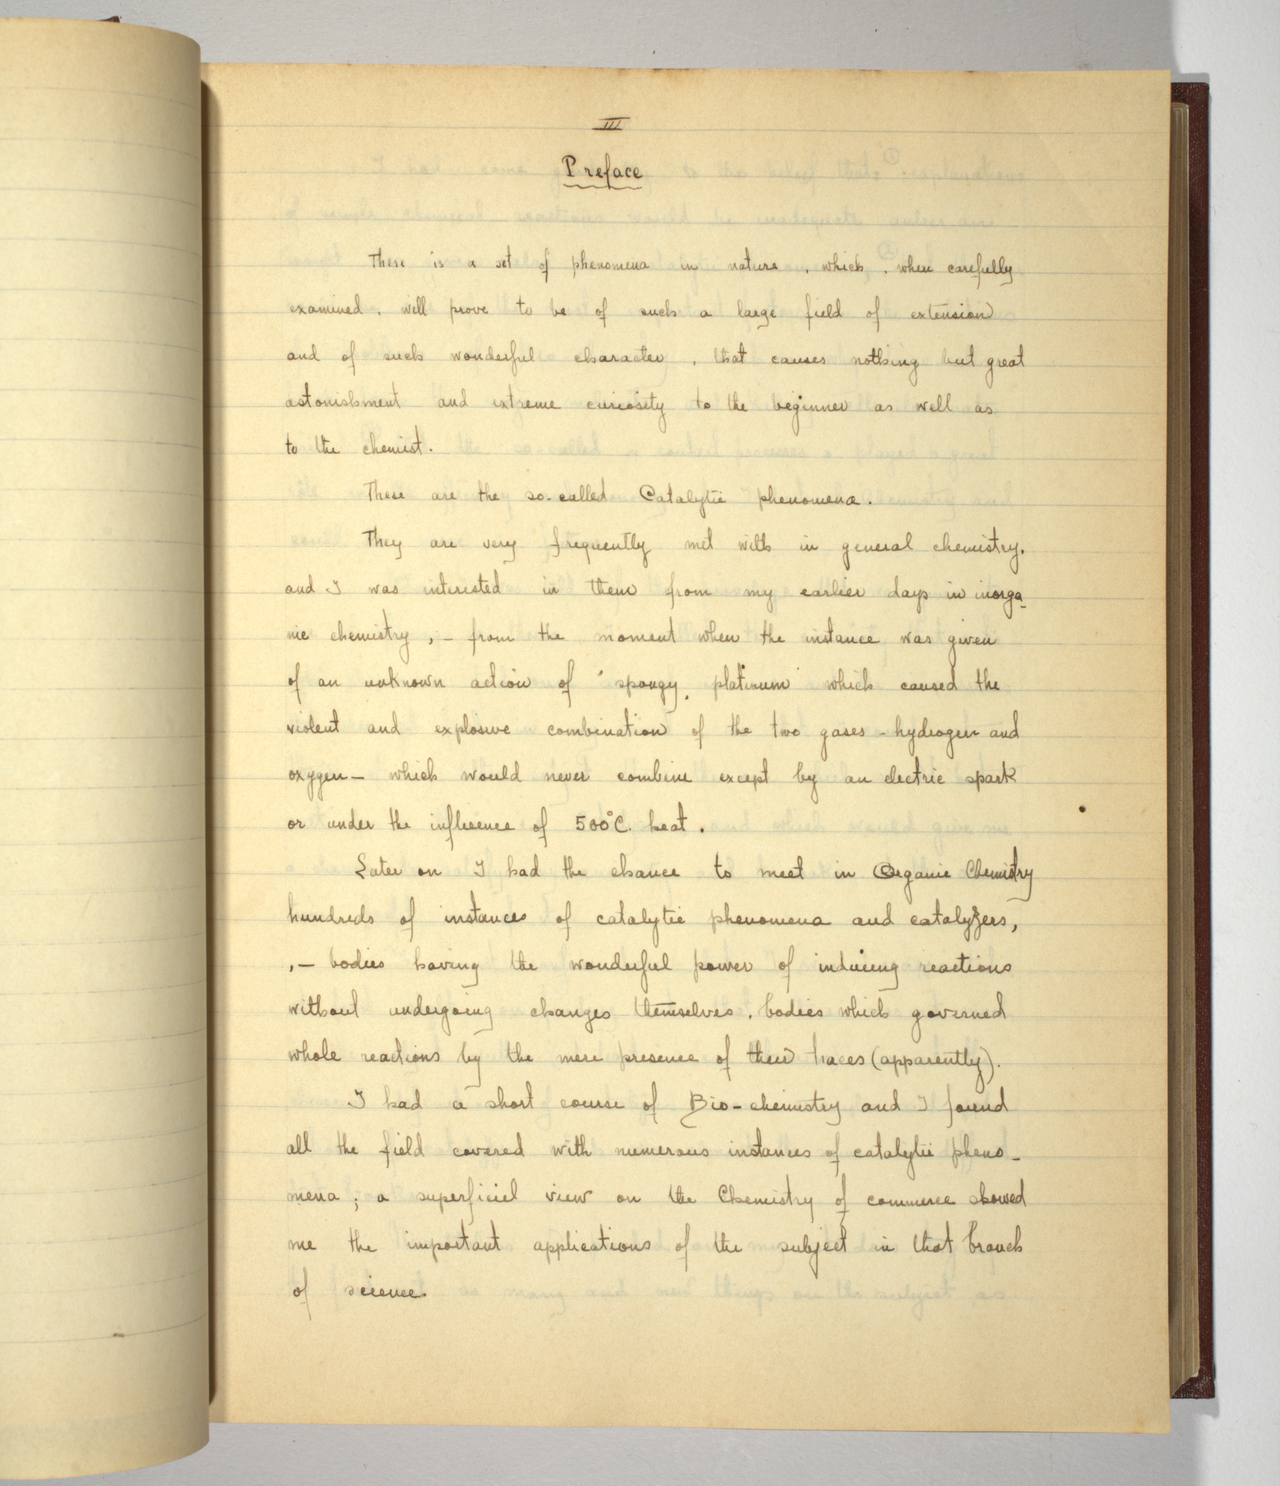 III
Preface
There is a set of phenomena in nature, which, when carefully
examined, will prove to be of such a large field of extension
and of such wonderful character, that causes nothing but great
astonishment and extreme curiosity to the beginner as well as
to the chemist.
These are the so-called Catalytic phenomena.
They are very frequently met with in general chemistry,
and I was interested in them from my earlier days in inorga-
nic chemistry, - from the moment when the instance was given
of an unknown action of "spongy platinum" which caused the
violent and explosive combination of the two gases - hydrogen and
oxygen - which would never combine except by an electric spark
or under the influence of 500°C. heat.
Later on I had the chance to meet in Organic Chemistry
hundreds of instances of catalytic phenomena and catalyzers,
,- bodies having the wonderful power of inducing reactions
without undergoing changes themselves, bodies which governed
whole reactions by the mere presence of their traces (apparently).
I had a short course of Bio-chemistry and I found
all the field covered with numerous instances of catalytic pheno-
mena; a superficiel view on the Chemistry of commerce showed
me the important applications of the subject in that branch
of science.